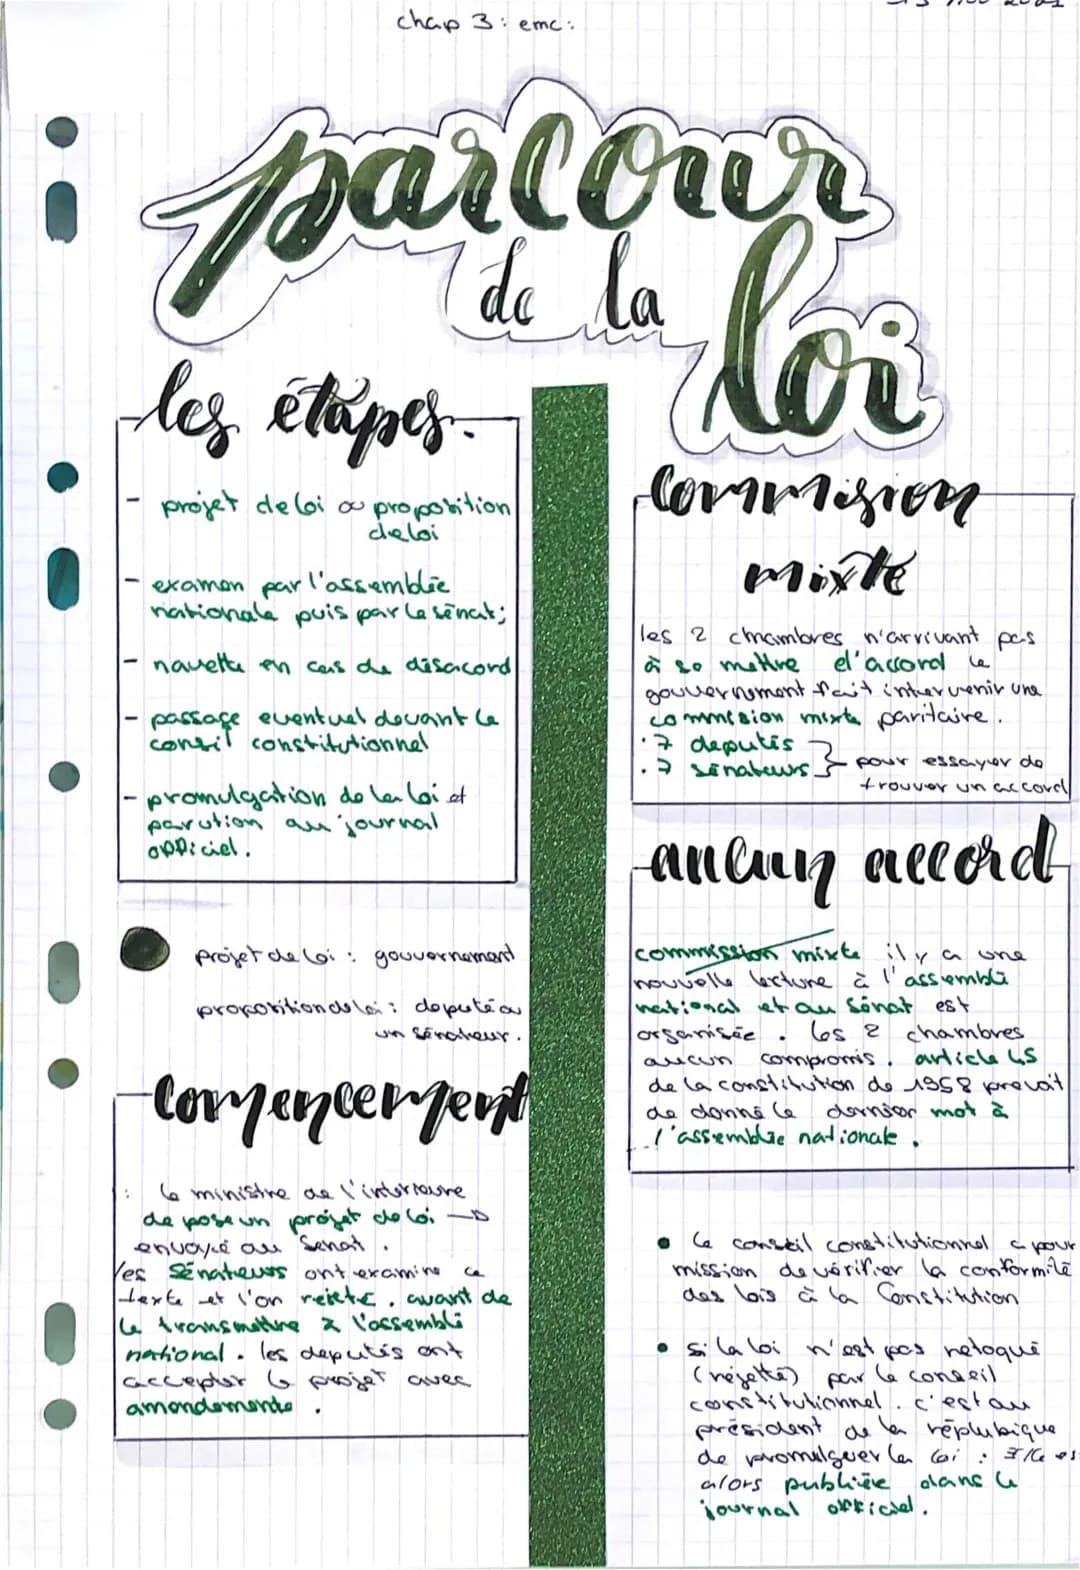 chap 3 : emc :
parcour
de la
loi
les étapes.
- projet de loi ou proposition
de loi
- examen par l'assemblée
nationale puis par le sénat;
- navette en cas de disacord
- passage eventuel devant le
conseil constitutionnel
- promulgation de la loi et
parution au journal
officiel.
projet de loi : gouvernement
proposition de loi : deputé ou
un sénateur.
Comencement
: le ministre de l'interieure
de pose un projet de loi →
envoyé au Senat.
les Sénateurs ont examine ce
texte et l'on rejeté. avant de
le transmettre à l'assemblé
national. les deputés ont
accepter le projet avec
amendements.
Commision
mixte
les 2 chambres n'arrivant pas
à se mettre d'accord le
gouvernement fait intervenir une
commision mixte paritaire.
. 7 deputés
. 7 sénateurs } pour essayer de
trouver un accord
aucun accord
commission mixte il y a une
nouvelle lecture à l'assemblé
national et au Sénat est
organisée. les 2 chambres
aucun compromis. article 45
de la constitution de 1958 prevoit
de donné le dernier mot à
l'assemblée nationale.
• le conseil constitutionnel a pour
mission de vérifier la conformité
des lois à la Constitution
• si la loi n'est pas retoqué
(rejetté) par le conseil
constitutionnel. c'est au
président de la réplubique
de promulguer la loi :
alors publiée dans le
journal officiel.